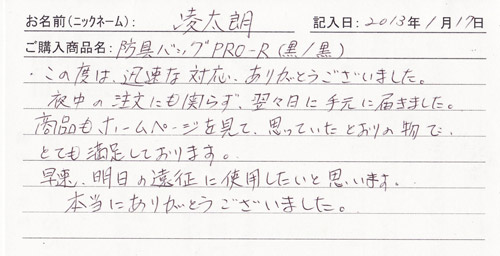 お名前(ニックネーム): 凌太朗 記入日: 2013年 1月 17日
ご購入商品名: 防具バッグPRO-R (黒/黒)
・この度は、迅速な対応、ありがとうございました。
夜中の注文にも関らず、翌々日に手元に届きました。
商品もホームページを見て、思っていたとおりの物で、
とても満足しております。
早速、明日の遠征に使用したいと思います。
本当にありがとうございました。